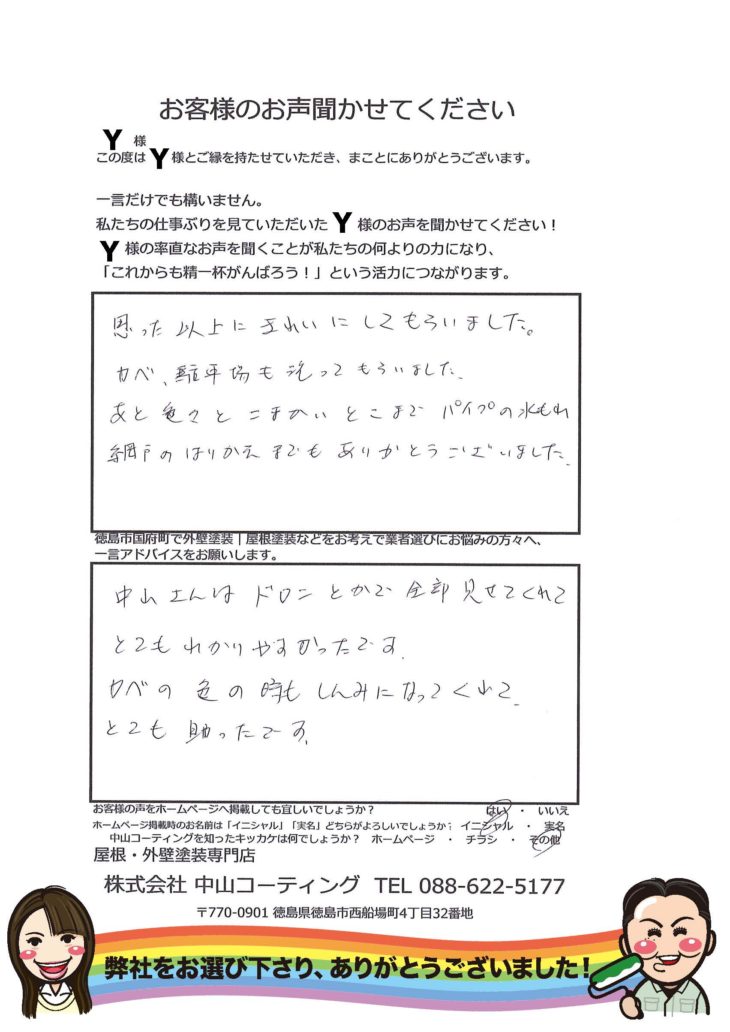 お客様のお声聞かせてください
Y 様
この度は Y 様とご縁を持たせていただき、まことにありがとうございます。
一言だけでも構いません。
私たちの仕事ぶりを見ていただいた Y 様のお声を聞かせてください！
Y 様の率直なお声を聞くことが私たちの何よりの力になり、
「これからも精一杯がんばろう！」という活力につながります。
思った以上にきれいにしてもらいました。
カベ、駐車場も洗ってもらいました。
あと色々とこまかいとこまで パイプの水もれ
網戸のはりかえまでもありがとうございました。
徳島市国府町で外壁塗装｜屋根塗装などをお考えで業者選びにお悩みの方々へ、
一言アドバイスをお願いします。
中山さんは ドロンとかで 全部見せてくれて
とてもわかりやすかったです。
カベの色の時もしんみになってくれて、
とても助ったです。
お客様の声をホームページへ掲載しても宜しいでしょうか？ はい ・ いいえ
ホームページ掲載時のお名前は「イニシャル」「実名」どちらがよろしいでしょうか？ イニシャル ・ 実名
中山コーティングを知ったキッカケは何でしょうか？ ホームページ ・ チラシ ・ その他
屋根・外壁塗装専門店
株式会社 中山コーティング TEL 088-622-5177
〒770-0901 徳島県徳島市西船場町4丁目32番地
弊社をお選び下さり、ありがとうございました！